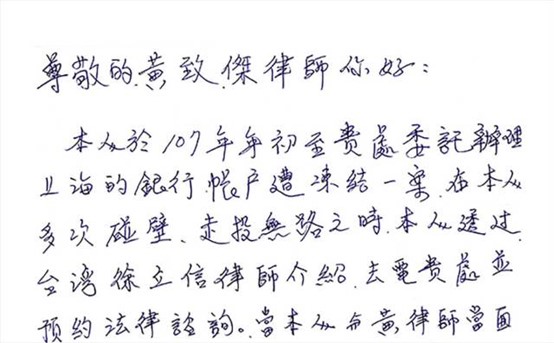 尊敬的黃致傑律師你好：
本人於107年年初至貴處委託辦理
上海的銀行帳户遭凍結一案，在本人
多次碰壁、走投無路之時，本人透過
台灣徐立信律師介紹，去電貴處並
預約法律諮詢。當本人与黃律師當面